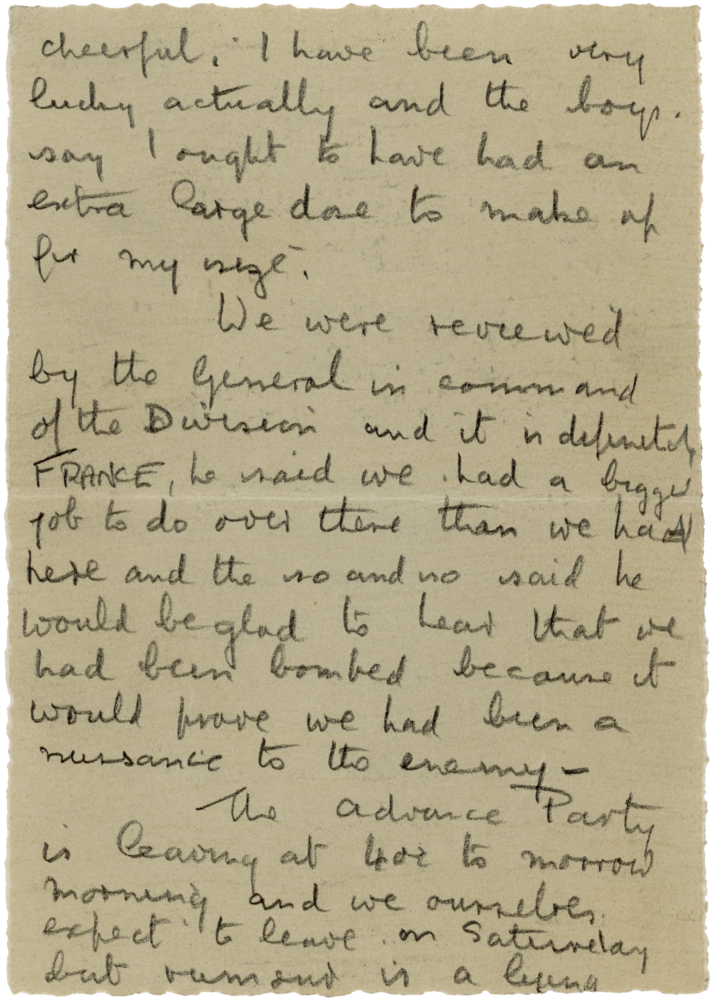 cheerful. I have been very
lucky actually and the boys.
say I ought to have had an
extra large dose to make up
for my size.
We were reviewed
by the General in command
of the Division and it is definitely
FRANCE, he said we had a bigger
job to do over there than we had
here and the so and so said he
would be glad to hear that we
had been bombed because it
would prove we had been a
nuisance to the enemy -
The advance Party
is leaving at to morrow
morning and we ourselves
expect to leave on Saturday
but rumour is a lying